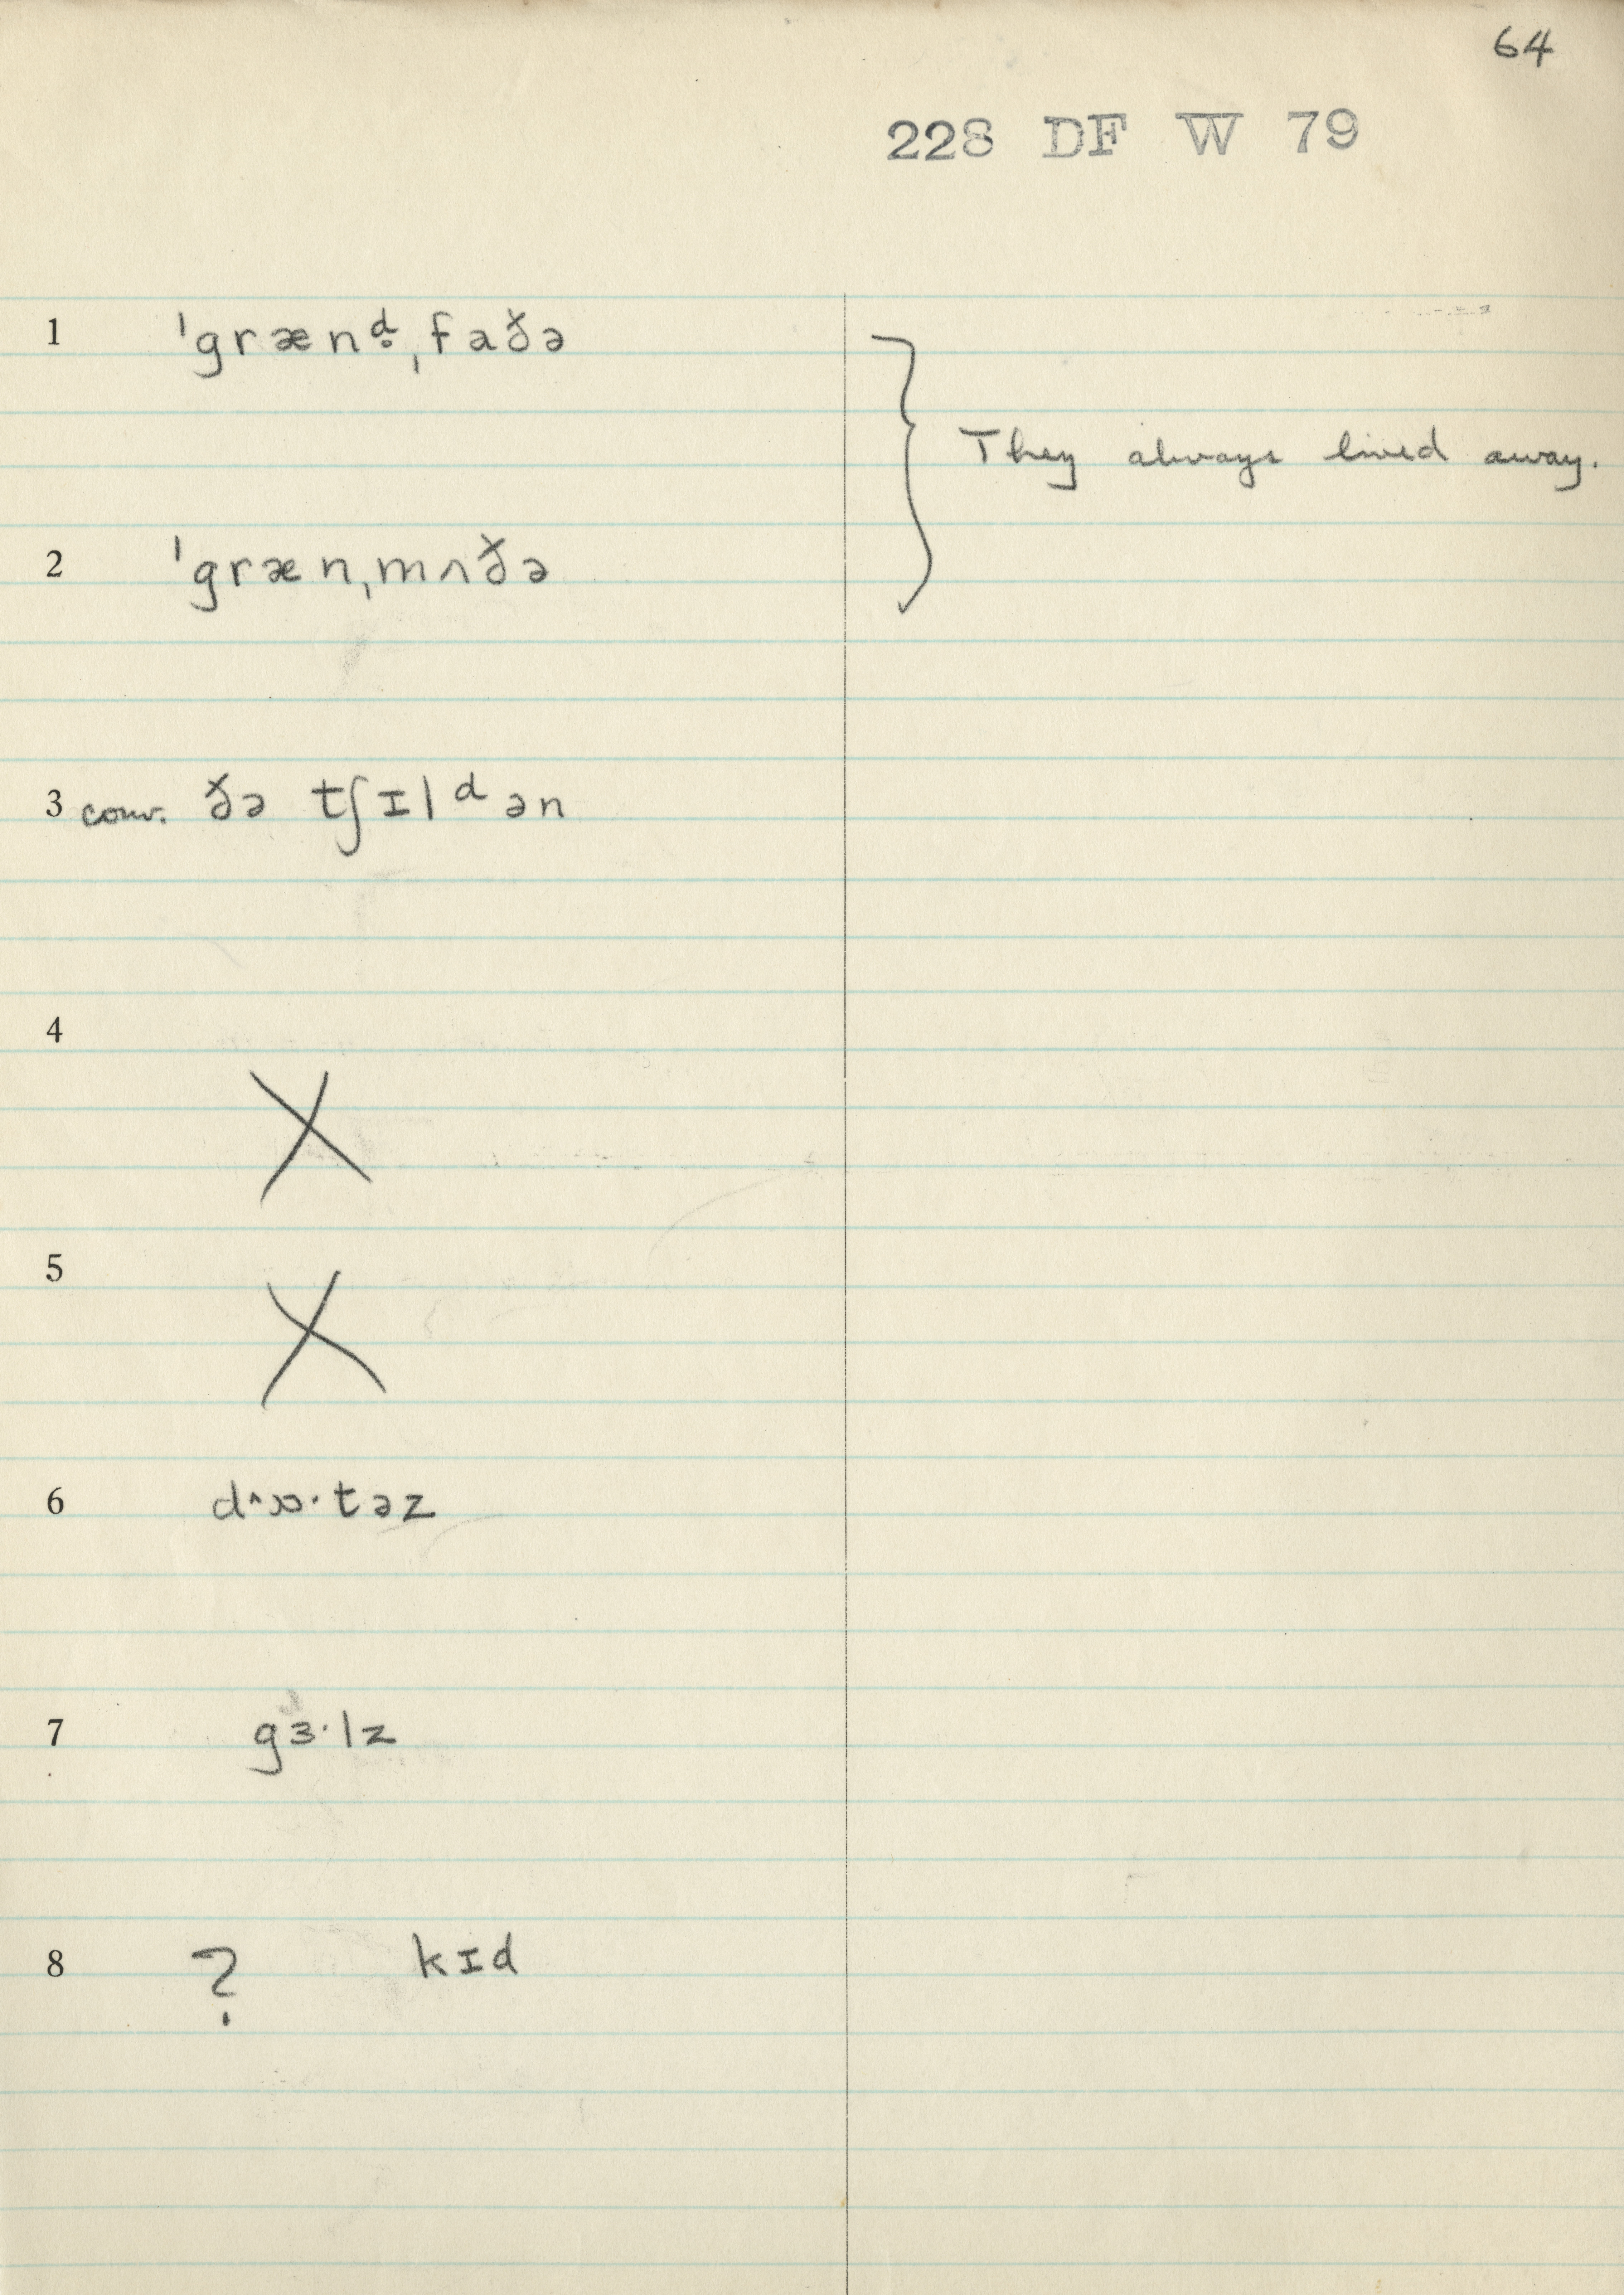 64
228 DF W 79
1 ˈgrænᵈ̥ˌfaðə
They always lived away.
2 ˈgrænˌmʌðə
3 conv. ðə tʃɪlᵈən
4 X
5 X
6 d^ɒ·təz
7 gɜ·lz
8 ? kɪd